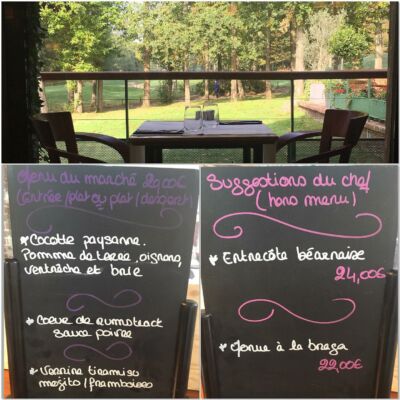 Menu du marché 29,00€
(entrée/plat ou plat/dessert)
* Cocotte paysanne.
Pomme de terre, oignons,
ventrèche et baie
* Coeur de rumsteack
sauce poivre
* Verrine tiramisu
mojito/framboises
Suggestions du chef
(hors menu)
* Entrecôte béarnaise
24,00€
* Morue à la braga
22,00€